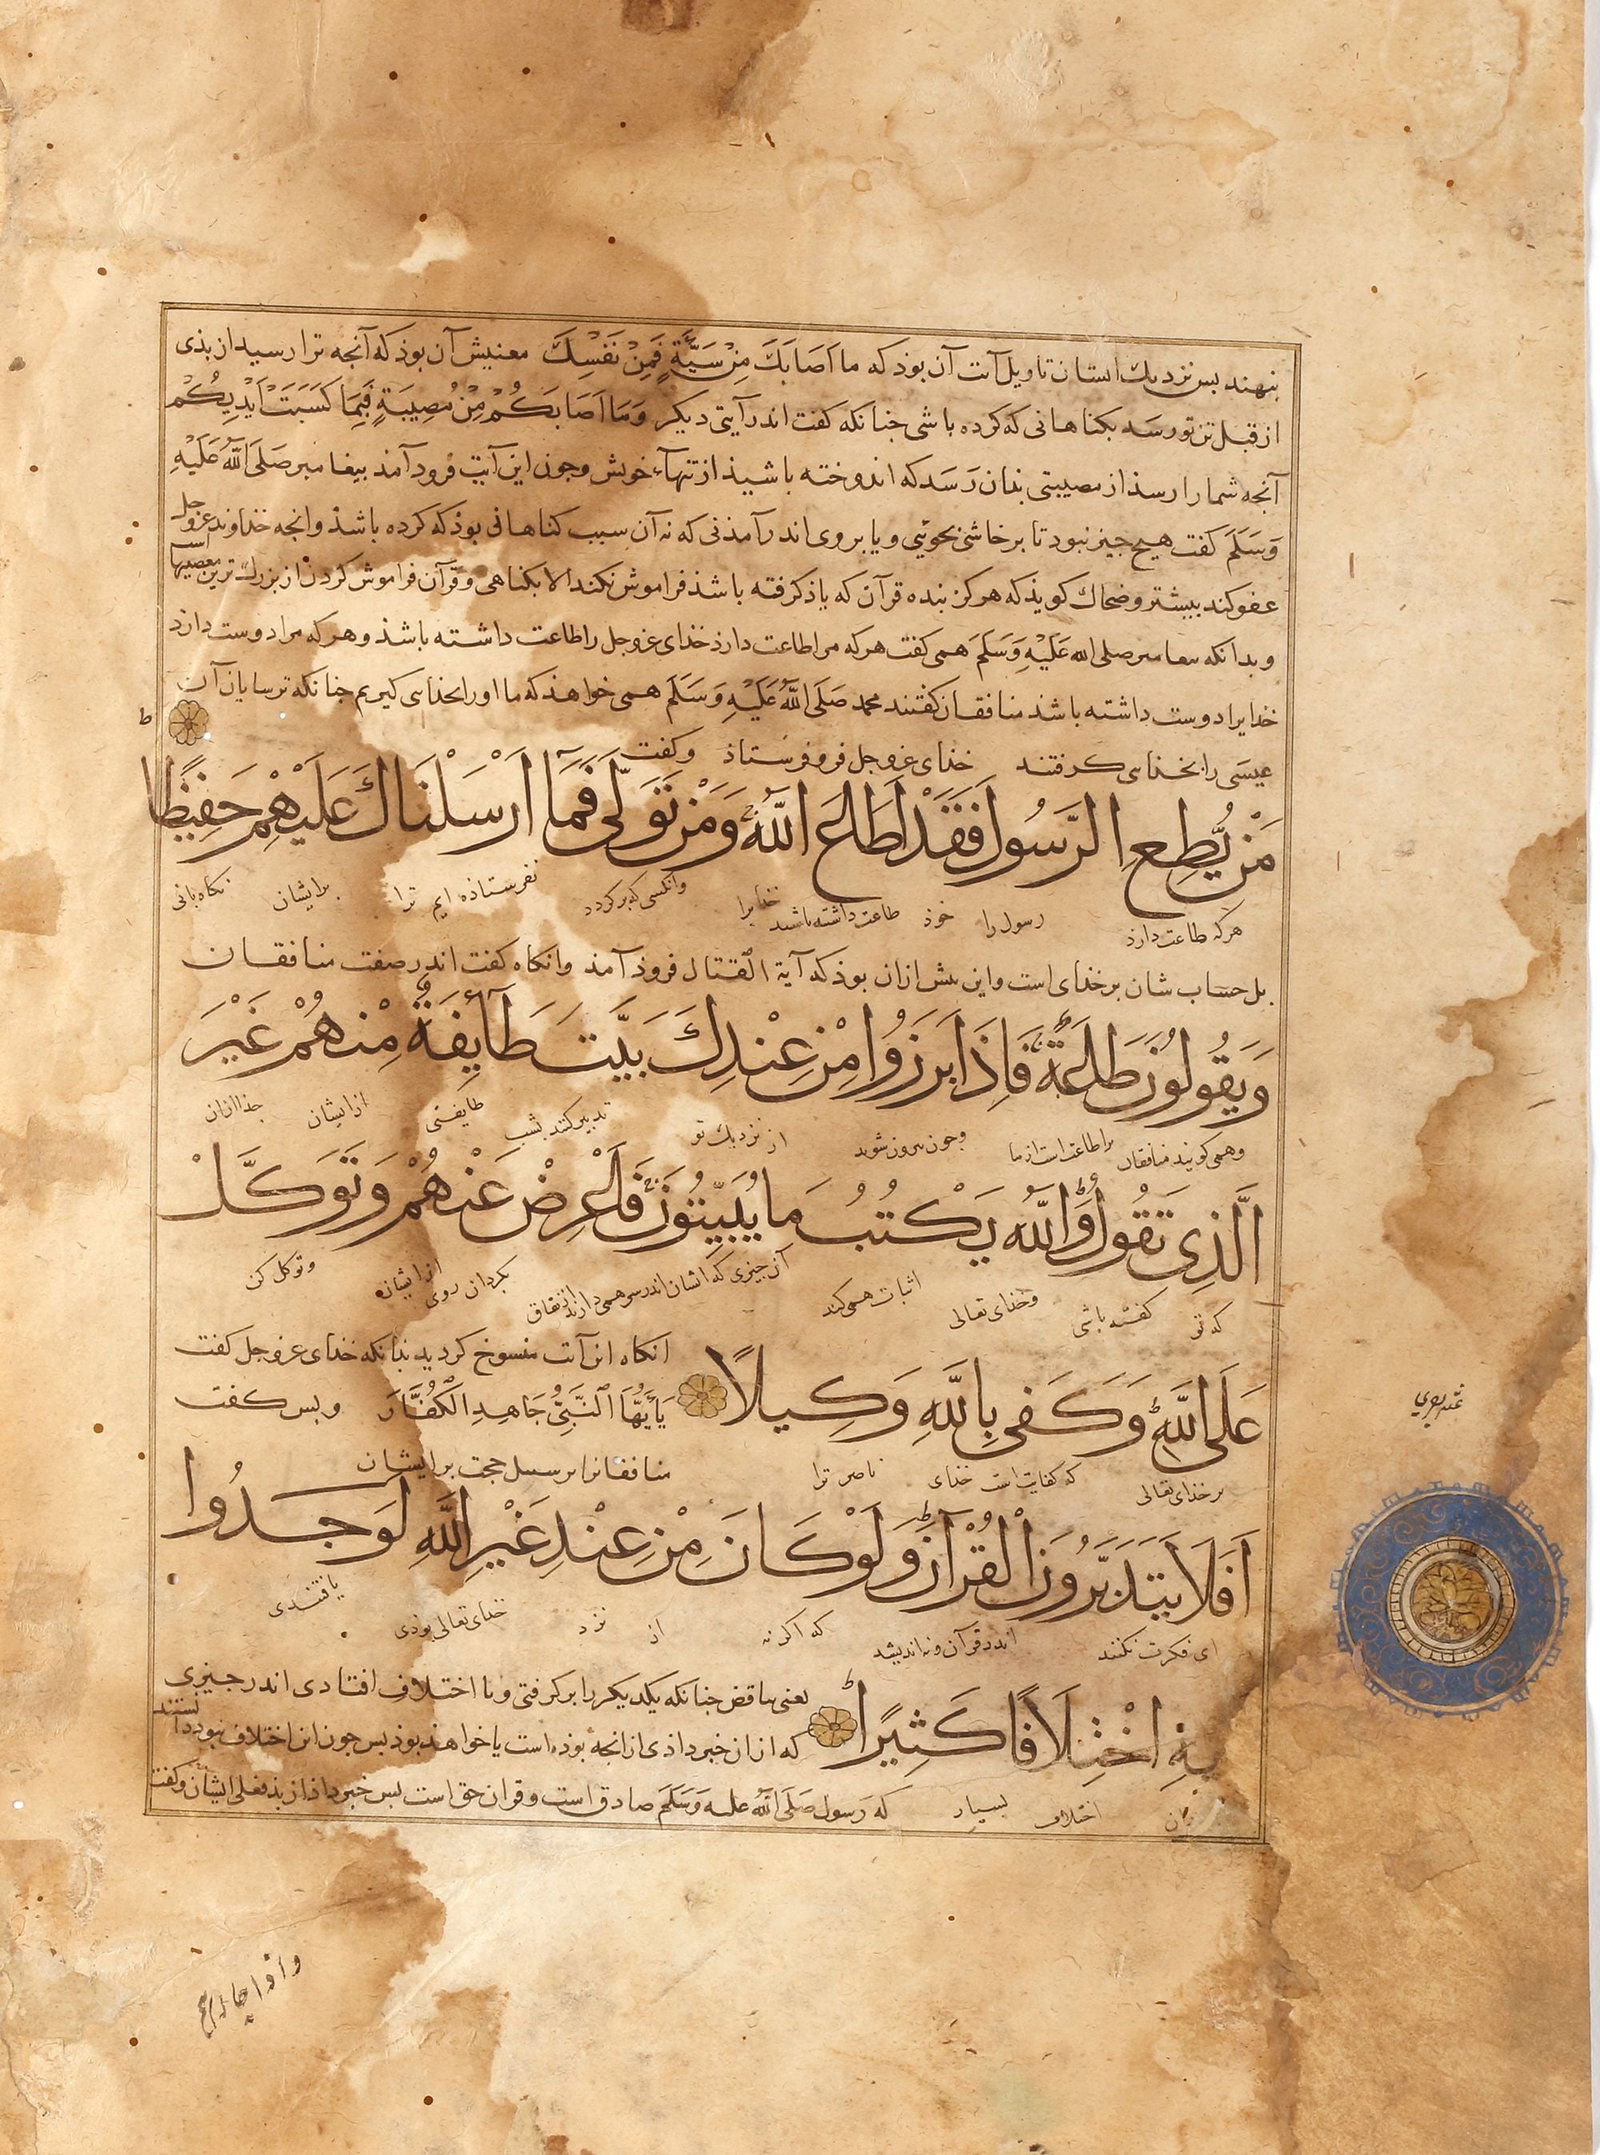 نهند بس نزدیك ایشان تاویل آیت آن بوذ که ما اَصَابَكَ مِنْ سَیِّئَةٍ فَمِنْ نَفْسِكَ معنیش آن بوذ که آنجه ترا رسید از بذی
از قبل تن تو رسد بکناهانی که کرده باشی جنانکه کفت اندر آیتی دیکر وَمَا اَصَابَكُمْ مِنْ مُصِيبَةٍ فَبِمَا كَسَبَتْ اَيْدِيكُمْ
آنجه شمارا رسذ از مصیبتی بذان رَسَد که اندوخته باشیذ از تنهآء خویش وجون این آیت فرود آمذ بیغامبر صَلَی اللَّهُ عَلَیْهِ
وَسَلَّمَ کفت هیج جیز نبود تا برخاشی بجوئی و یا بروی اندر آمذنی که نه آن سبب کناهانی بوذ که کرده باشذ وانجه خذاوند عزوجل
عفو کند بیشتر وضحاك کویذ که هرکز بنده قرآن که یاذ کرفته باشذ فراموش نکند الا بکناهی وقرآن فراموش کردن از بزرك ترین معصیتها است
وبدانکه بیغامبر صلی الله عَلَیْهِ وَسَلَّمَ همی کفت هرکه مرا طاعت دارذ خذای عزوجل را طاعت داشته باشذ وهرکه مرا دوست دارد
خدایرا دوست داشته باشذ منافقان کفتند محمد صَلَی اللَّهُ عَلَیْهِ وَسَلَّمَ همی خواهذ که ما اورا بخذای کیریم جنانکه ترسایان آن
عیسی را بخذای کرفتند خذای عزوجل فرو فرستاذ وکفت
مَنْ يُطِعِ الرَّسُولَ فَقَدْ اَطَاعَ اللَّهَ وَمَنْ تَوَلَّى فَمَا اَرْسَلْنَاكَ عَلَيْهِمْ حَفِيظًا
هرکه طاعت دارذ رسول را خوذ طاعت داشته باشد خذایرا وانکسی که برکردد نفرستاده ایم ترا برایشان نکاه بانی
بل حساب شان بر خذای است واین بیش ازان بوذ که آیة القتال فروذ آمذ وانکاه کفت اندر صفت منافقان
وَيَقُولُونَ طَاعَةٌ فَاِذَا بَرَزُوا مِنْ عِنْدِكَ بَيَّتَ طَآئِفَةٌ مِنْهُمْ غَيْرَ
وهمی کویند منافقان را طاعت است از ما وجون بیرون شوند از نزدیك تو تدبیر کنند بشب طایفتی ازایشان جذا ازان
الَّذِي تَقُولُ وَاللَّهُ يَكْتُبُ مَا يُبَيِّتُونَ فَاَعْرِضْ عَنْهُمْ وَتَوَكَّلْ
که تو کفته باشی وخذای تعالی اثبات همی کند آن جیزی که ایشان اندر سر همی دارند از نفاق بکردان روی ازایشان وتوکل کن
عَلَى اللَّهِ وَكَفَى بِاللَّهِ وَكِيلًا
انکاه این آیت منسوخ کردید بذانکه خذای عزوجل کفت
يَا أَيُّهَا النَّبِيُّ جَاهِدِ الْكُفَّارَ وبس کفت
منافقانرا بر سبیل حجت برایشان
بر خذای تعالی که کفایت است خذای ناصر ترا
اَفَلَا يَتَدَبَّرُونَ الْقُرْآنَ وَلَوْ كَانَ مِنْ عِنْدِ غَيْرِ اللَّهِ لَوَجَدُوا
ای فکرت نکنند اندر قرآن ونه اندیشند که اکر نه از نزد خذای تعالی بوذی یافتندی
فِيهِ اخْتِلَافًا كَثِيرًا
یعنی تناقض جنانکه یکدیکر را برکرفتی ویا اختلاف افتادی اندر جیزی
که از ان خبر داذی از انجه بوذه است یا خواهذ بوذ بس جون این اختلاف نبود دانستند
که رَسول صَلَی اللَّهُ علیه وَسَلَّمَ صادق است وقران حق است بس خبر داذ از بذ فعلی ایشان وکفت
اختلاف بسیار